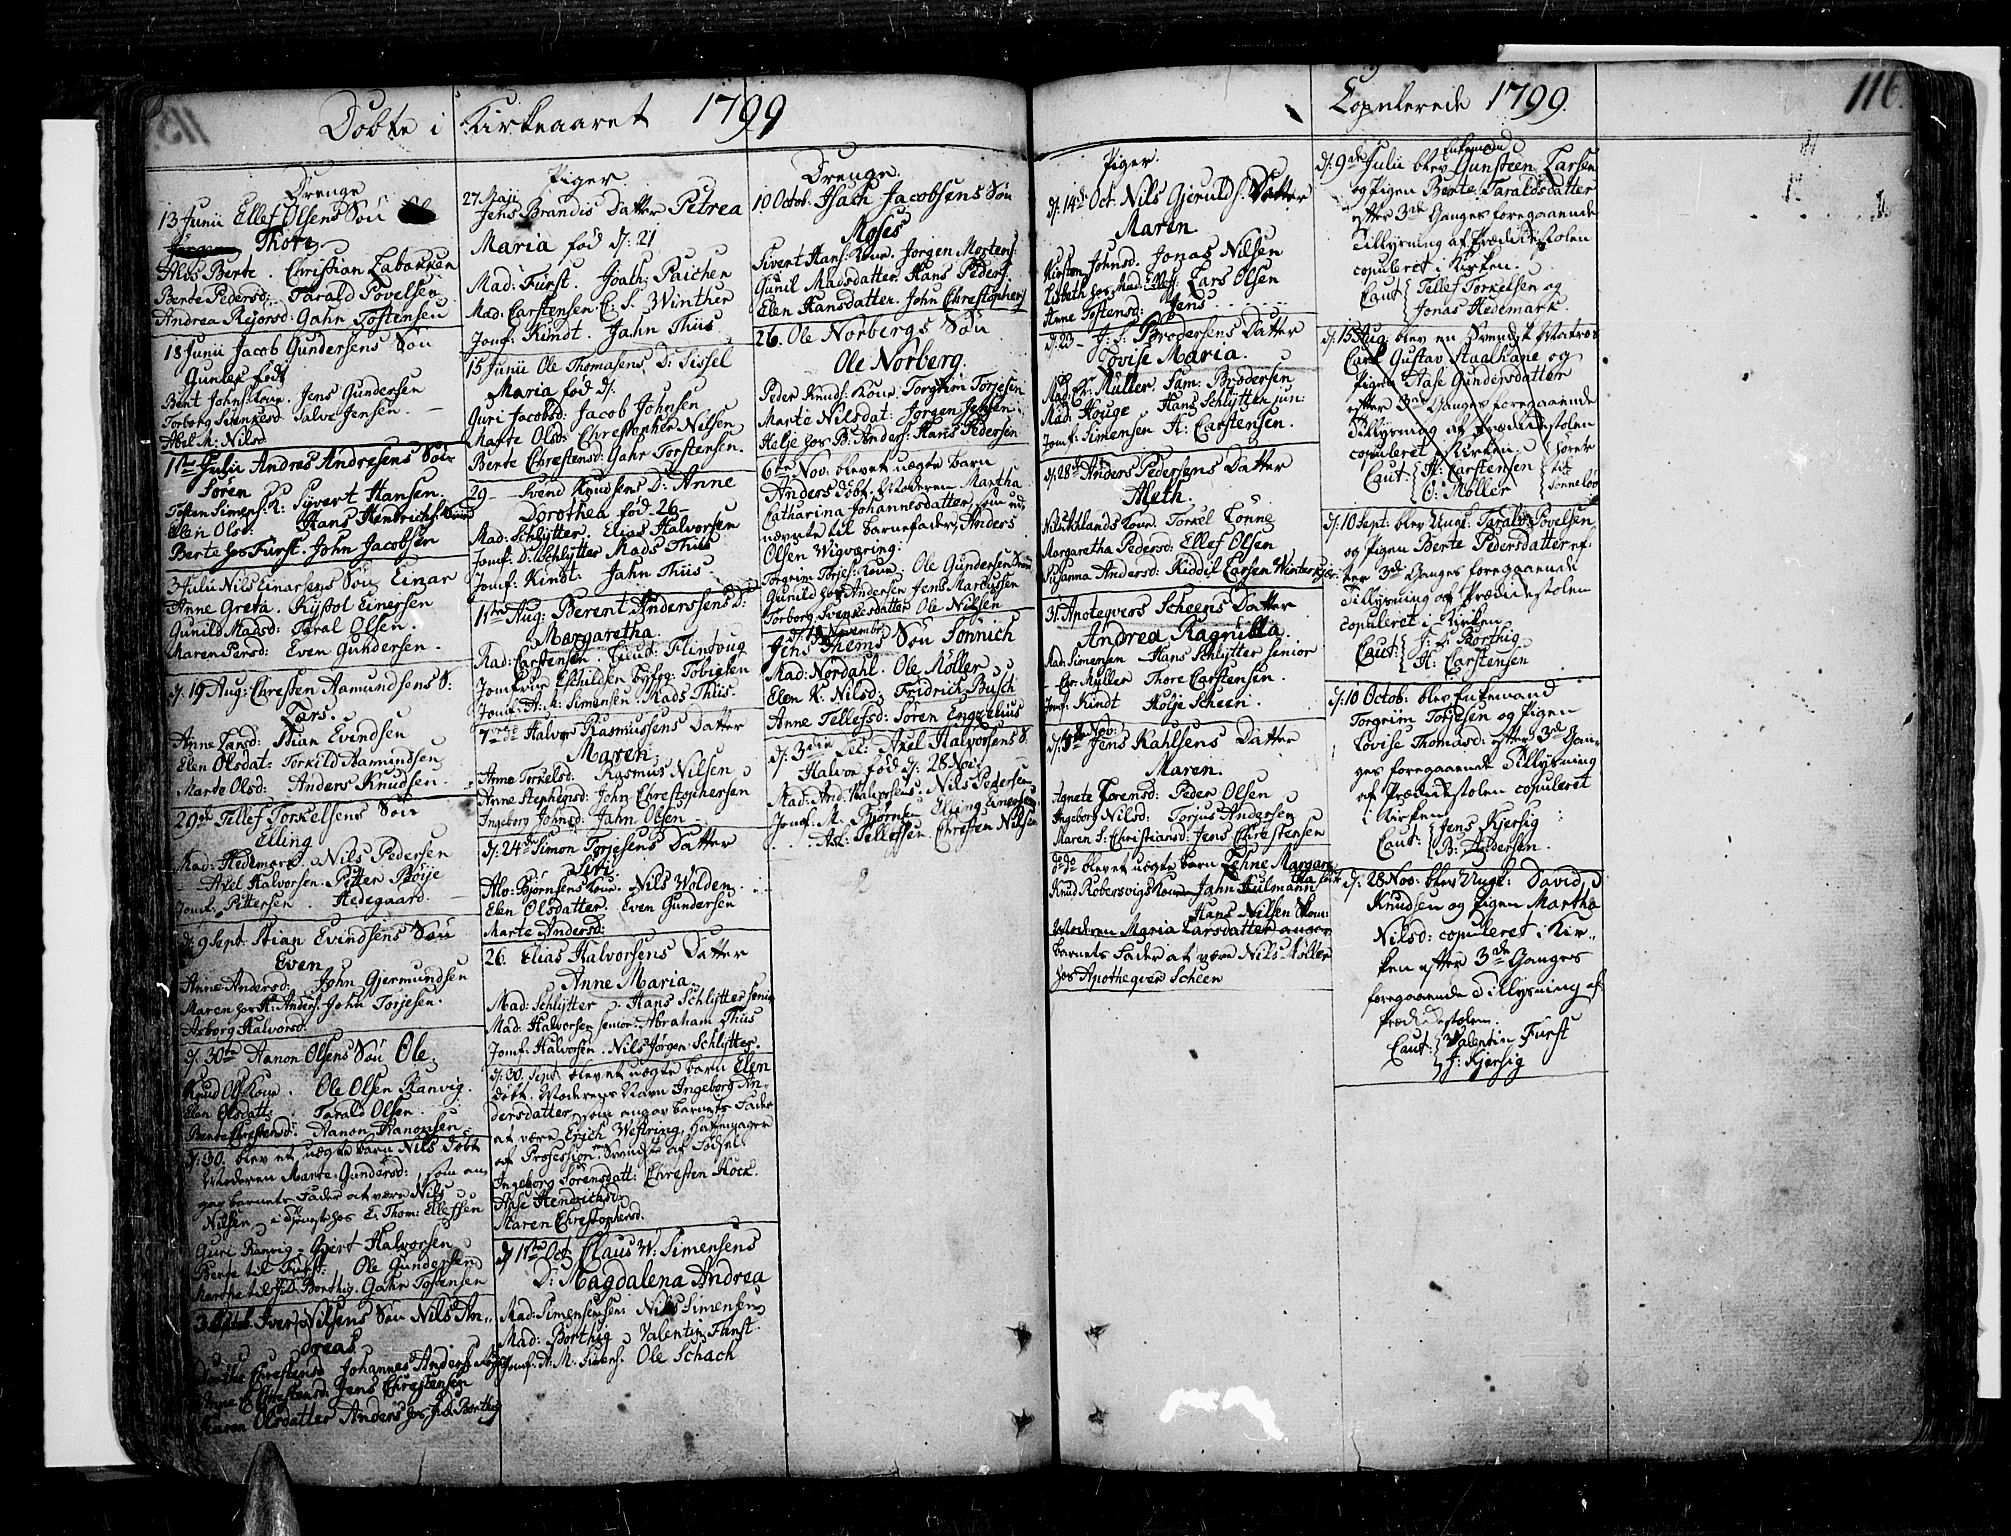 Döbte i Kirkeaaret 1799
Drenge
13 Junii Ellef Olsens Sön
Thore
Alos Berte. Christian Labakken
Berte Pedersd: Tarald Povelsen
Andrea Rejorsd: Gahr Tostensen
18 Junii Jacob Gundersens Sön
Gunlef født
Bent Johns Kone. Jens Gundersen
Torborg Svenkesd: Salve Jensen.
Abel M: Nilsd
1ste Julii Andres Andresens Sön
Sören
Tosten Simens: K: Syvert Hansen.
Elen Olsd: Hans Hendrichs: Sand
Berte hos Fürst. John Jacobsen
3 Julii Nils Einarsens Sön Einar
Anne Greta. Kystol Einersen
Gunild Madsd: Taral Olsen.
Maren Persd: Even Gundersen.
d: 19 Aug: Christen Aamundsens S:
Lars.
Anne Larsd: Stian Evindsen
Elen Olsdat: Torkild Aamundsen
Marte Olsd: Anders Knudsen.
29de Tellef Torkelsens Sön
Elling
Mad: Hedemark. Nils Pedersen
Axel Halvorsen. Petter Böije
Jomf: Pittersen. Hedegaard.
d: 9 Sept. Stian Evindsens Sön
Even
Anne Andersd: John Gjermundsen
Maren hos H: Anders. John Torjesen.
Asborg Halvorsd:
d: 30te Aanon Olsens Sön Ole
Knud Ols: Kone. Ole Olsen Ranvig.
Elen Olsdatt: Tarald Olsen
Bente Christensd: Aanon Aanonsen.
d: 30. blev et uægte barn Nils döbt
Moderen Marte Gundersd: som an
gav barnets Fader at være Nils
Nilsen i tjeneste hos E. Thom: Ellefsen
Guri Ranvig - Gjert Halvorsen
Berte til Fürst: Ole Gundersen
Marthe til J. Borthig. Gahr Tostensen
3 Octob. Iver Nilsens Sön Nils An-
dreas.
Dorthe Chrestensd Johannes Anders:
Anne Chrestensd: Jens Chrestensen
Karen Olsdatter Anders hos J: Borthig
Piger.
27 Maji
Jens Brandis Datter Petrea
Maria fød d: 21
Mad: Fürst. Joach: Paichen
Mad: Carstensen. C. S. Winther
Jomf: Kimdt. Jahn Thiis
15 Junii Ole Thomasens D: Sissel
Maria fød d:
Guri Jacobsd: Jacob Johnsen
Marte Olsd: Christopher Nilsen
Berte Chrestensd: Gahr Torstensen.
29 — Svend Knudsens D: Anne
Dorothea fød 26
Mad: Schlytter. Elias Halvorsen
Jomf: D: Schlytter Mads Thiis
Jomf: Kindt. Jahn Thiis.
11te Aug: Berent Anderssens D:
Margaretha
Mad: Carstensen. Cuud: Flintoug
Jomfrue Eschilden Byfog: Tobiesen
Jomf: A: M: Simensen. Mads Thiis.
7 Halvor Rasmussens Datter
Maren
Anne Torkelsd: Rasmus Nilsen
Anne Stephensd: John Chrestophersen
Ingeborg Johnsd: Jahn Olsen
d: 24de Simon Torjesens Datter
Siri
Alv: Bjørnsens Kone. Nils Wolden
Elen Olsdatter. Even Gundersen
Marte Andersd:
26. Elias Halvorsens Datter
Anne Maria
Mad: Schlytter. Hans Schlytter senior
Mad: Halvorsen senior: Abraham Thiis
Jomf: Halvorsen. Nils Jørgen Schlytter.
d: 30. Sept. blev et uægte barn Elen
döbt. Moderens Navn Ingeborg An-
dersdatter, som angav barnets Fader
at være Erich Westring, Hattemager
af Profession, Svensk af Fødsel
Ingeborg Sörensdatt: Chresten Kock.
Aase Hendrichsd:
Maren Christophersd:
d 11te Oct Claus W: Simensens
D: Magdalena Andrea
Mad: Simensen sen: Nils Simensen
Mad: Borthig Valentin Fürst.
Jomf: A: M: Simens. Ole Schach
Drenge.
10 Octob. Isach Jacobsens Sön
Moses
Sivert Hans: Kone. Jorgen Mortens:
Gunil Madsdatter. Hans Peders:
Elen Hansdatter. John Chrestophers
26. Ole Norbergs Sön
Ole Norberg.
Peder Knuds: Kone. Torgrim Torjesen
Marte Nilsdat: Jorgen Jensen
Helje hos B: Anders: Hans Pedersen
6te Nov. blev et uægte barn
Anders döbt. Moderen Martha
Catharina Johannesdatter, som ud
nævnte til barnefader Anders
Olsen Wigværing.
Torgrim Torjes: Kone. Ole Gundersen
Gunild hos Andersen Jens Marcussen
Torborg Svenkesdatter Ole Nilsen
d: November
Jens Thems Sön Sönnich
Mad: Nordahl. Ole Möller
Elen K. Nilsd: Fridrich Busch
Anne Tellefsd: Sören Engzelius
d: 3die Dec: Axel Halvorsens S.
Halvor fød d: 28 Nov:
Mad: And: Halvorsens. Nils Pedersen
Jomf: M. Bjørnen Elling Einersen
Asl: Tellefsen Chresten Nilsen
Copulerede 1799.
116.
Piger.
d: 14de Oct. Nils Gjeruld s. Datter
Maren
Kirsten Johnsd: Jonas Nilsen
Lisbeth hos Mad: Ellef: Lars Olsen
Anne Tostensd: Jens
d: 23 — J. S. Brodersens Datter
Lovise Maria.
Mad: Er. Müller. Sam. Brodersen
Mad: Houge Hans Schlytter jun:
Jomf: Simensen H: Carstensen.
d: 28de Anders Pedersens Datter
Aleth.
Nils Uhlands Kone. Torkel Lonne
Margaretha Pedersd: Ellef Olsen
Susanna Andersd: Kiddil Larsen Winterkjær
31. Apotegvers Scheens Datter
Andrea Ragnilla
Mad: Simensen — Hans Schlytter senior
— Chr. Müller Thore Carstensen.
Jomf: Kindt Hölje Scheen.
d: 5te Nov: Jens Kahlsens Datter
Maren.
Agnete Lorensd: Peder Olsen
Ingeborg Nilsd: Torjus Andersen
Maren S: Christiansd: Jens Chrestensen
dodo blev et uægte barn Lehne Margare
tha født
Knud Robersvigs Kone. Jahn Hulmann
Hans Nilsen Skom:
Moderen Maria Larsdatter angav
barnets Fader at være Nils Möller
hos Apotheqver Scheen
d: 9de Julii blev Enkemand Gunsteen Larsen
og Pigen Berte Taraldsdatter
efter 3de Ganges foregaaende
Tillysning af Prædikestolen
copuleret i Kirken.
Caut: Tellef Torkelsen og
Jonas Hedemark.
d: 15 Aug: blev en Svensk Matros
Carl Gustav Staalhane og
Pigen Aase Gundersdatter
efter 3de Ganges foregaaende
Tillysning af Prædikestolen
copuleret i Kirken.
Caut: H: Carstensen
O: Möller
d: 10 Sept. blev Ungk: Tarald Povelsen
og Pigen Berte Pedersdatter ef-
ter 3de Ganges foregaaende
Tillysning af Prædikestolen
copuleret i Kirken
Caut: J. F. Borthig
H: Carstensen
d: 10 Octob: blev Enkemand
Torgrim Torjesen og Pigen
Lovise Thomasd: efter 3de Gan-
ges foregaaende Tillysning
af Prædikestolen copuleret
i Kirken.
Caut: Jens Kjersig
B: Andersen.
d: 28 Nov: blev Ungk: David
Knudsen og Pigen Martha
Nilsd: copuleret i Kir-
ken efter 3de Ganges
foregaaende Tillysning af
Prædikestolen.
Caut: Valentin Fürst
J: Kjersig